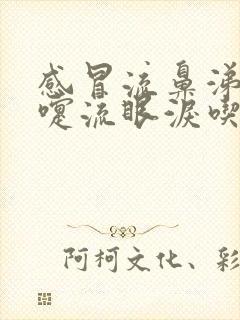 感冒流鼻涕
嚏流眼泪喫
阿柯文化、彩